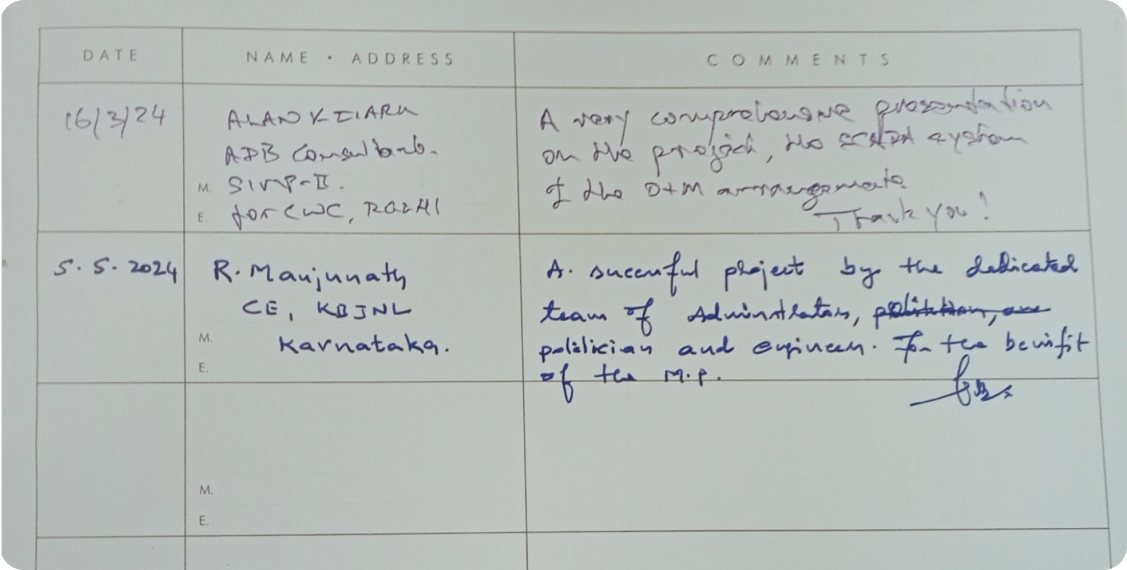 DATE NAME · ADDRESS COMMENTS
16/3/24
ALAN
ADB Consultant.
M. SIMP-II.
E. for CWC,
A very comprehensive presentation
on the project, the SCADA system
& the O+M arrangements
Thank you!
5.5.2024
R. Manjunath
CE, KBJNL
M. Karnataka.
E.
A. successful project by the dedicated
team of Administrators,
politician and engineers. For the benifit
of the M.P.
M.
E.